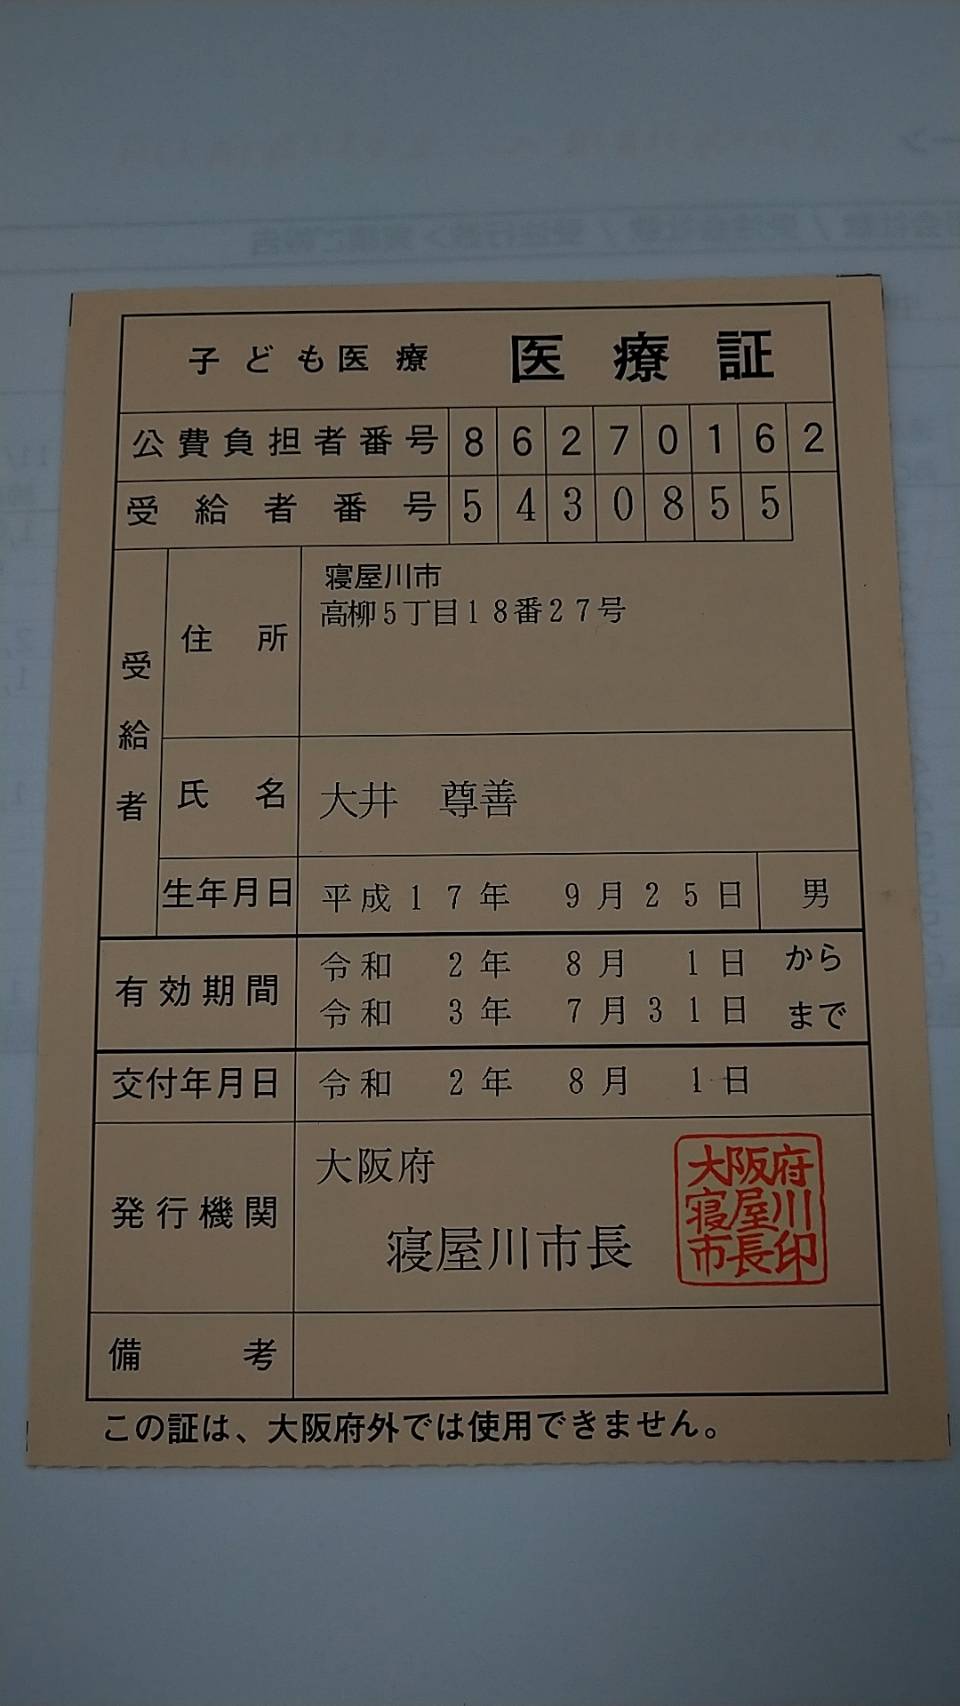 子ども医療 医療証
公費負担者番号 86270162
受給者番号 5430855
受給者
住所 寝屋川市
高柳5丁目18番27号
氏名 大井 尊善
生年月日 平成17年 9月25日 男
有効期間 令和 2年 8月 1日 から
令和 3年 7月31日 まで
交付年月日 令和 2年 8月 1日
発行機関 大阪府
寝屋川市長
大阪府
寝屋川
市長印
備考
この証は、大阪府外では使用できません。